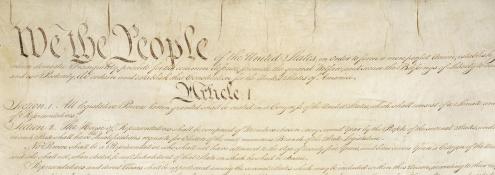 We the People of the United States, in Order to form a more perfect Union, establish
insure domestic Tranquility, provide for the common defence, promote the general Welfare, and secure the Blessings of Liberty to
and our Posterity, do ordain and establish this Constitution for the United States of America.
Article I.
Section. 1. All legislative Powers herein granted shall be vested in a Congress of the United States, which shall consist of a Senate and
of Representatives.
Section. 2. The House of Representatives shall be composed of Members chosen every second Year by the People of the several States, and
in each State shall have
No Person shall be a Representative who shall not have attained to the Age of twenty five Years, and been seven Years a Citizen of the
and who shall not, when elected, be an Inhabitant of that State in which he shall be chosen.
Representatives and direct Taxes shall be apportioned among the several States which may be included within this Union, according to their